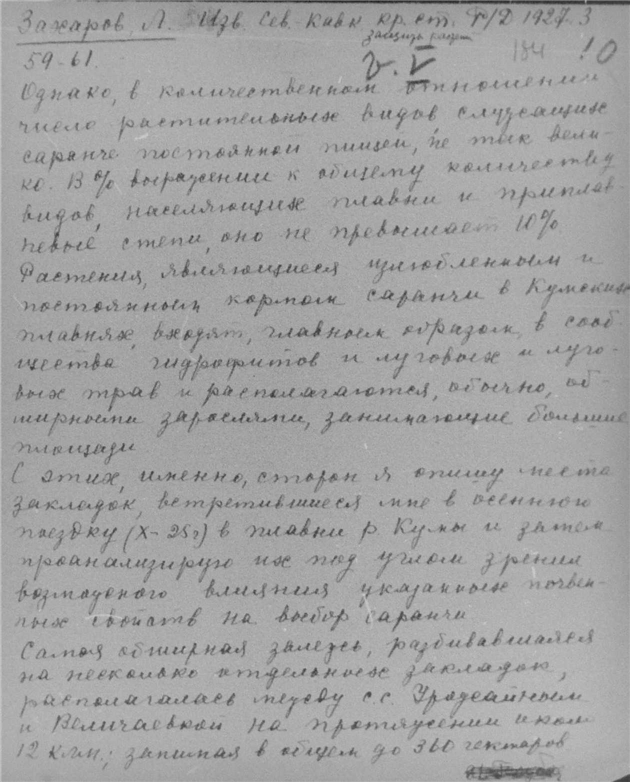 Захаров, Л. Изв. Сев. Кавк кр. ст. 1927. 3
защиты раст
v. V 184 !0
59-61.
Однако, в количественном отношении
число растительных видов служащих
саранче постоянной пищей, не так вели-
ко. В % выражении к общему количеству
видов, населяющих плавни и приплав-
невые степи, оно не превышает 10%.
Растения, являющиеся излюбленным и
постоянным кормом саранчи в Кумских
плавнях, входят, главным образом, в сооб-
щества гидрофитов и луговых и луго-
вых трав и располагаются, обычно, об-
ширными зарослями, занимающие большие
площади
С этих, именно, сторон я опишу места
закладок, встретившиеся мне в осеннюю
поездку (X-25г) в плавни р. Кумы и затем
проанализирую их под углом зрения
возможного влияния указанных почвен-
ных свойств на выбор саранчи
Самая обширная залежь, разбивавшаяся
на несколько отдельных закладок,
располагалась между с.с. Урожайным
и Величаевкой на протяжении около
12 клм.; занимая в общем до 360 гектаров